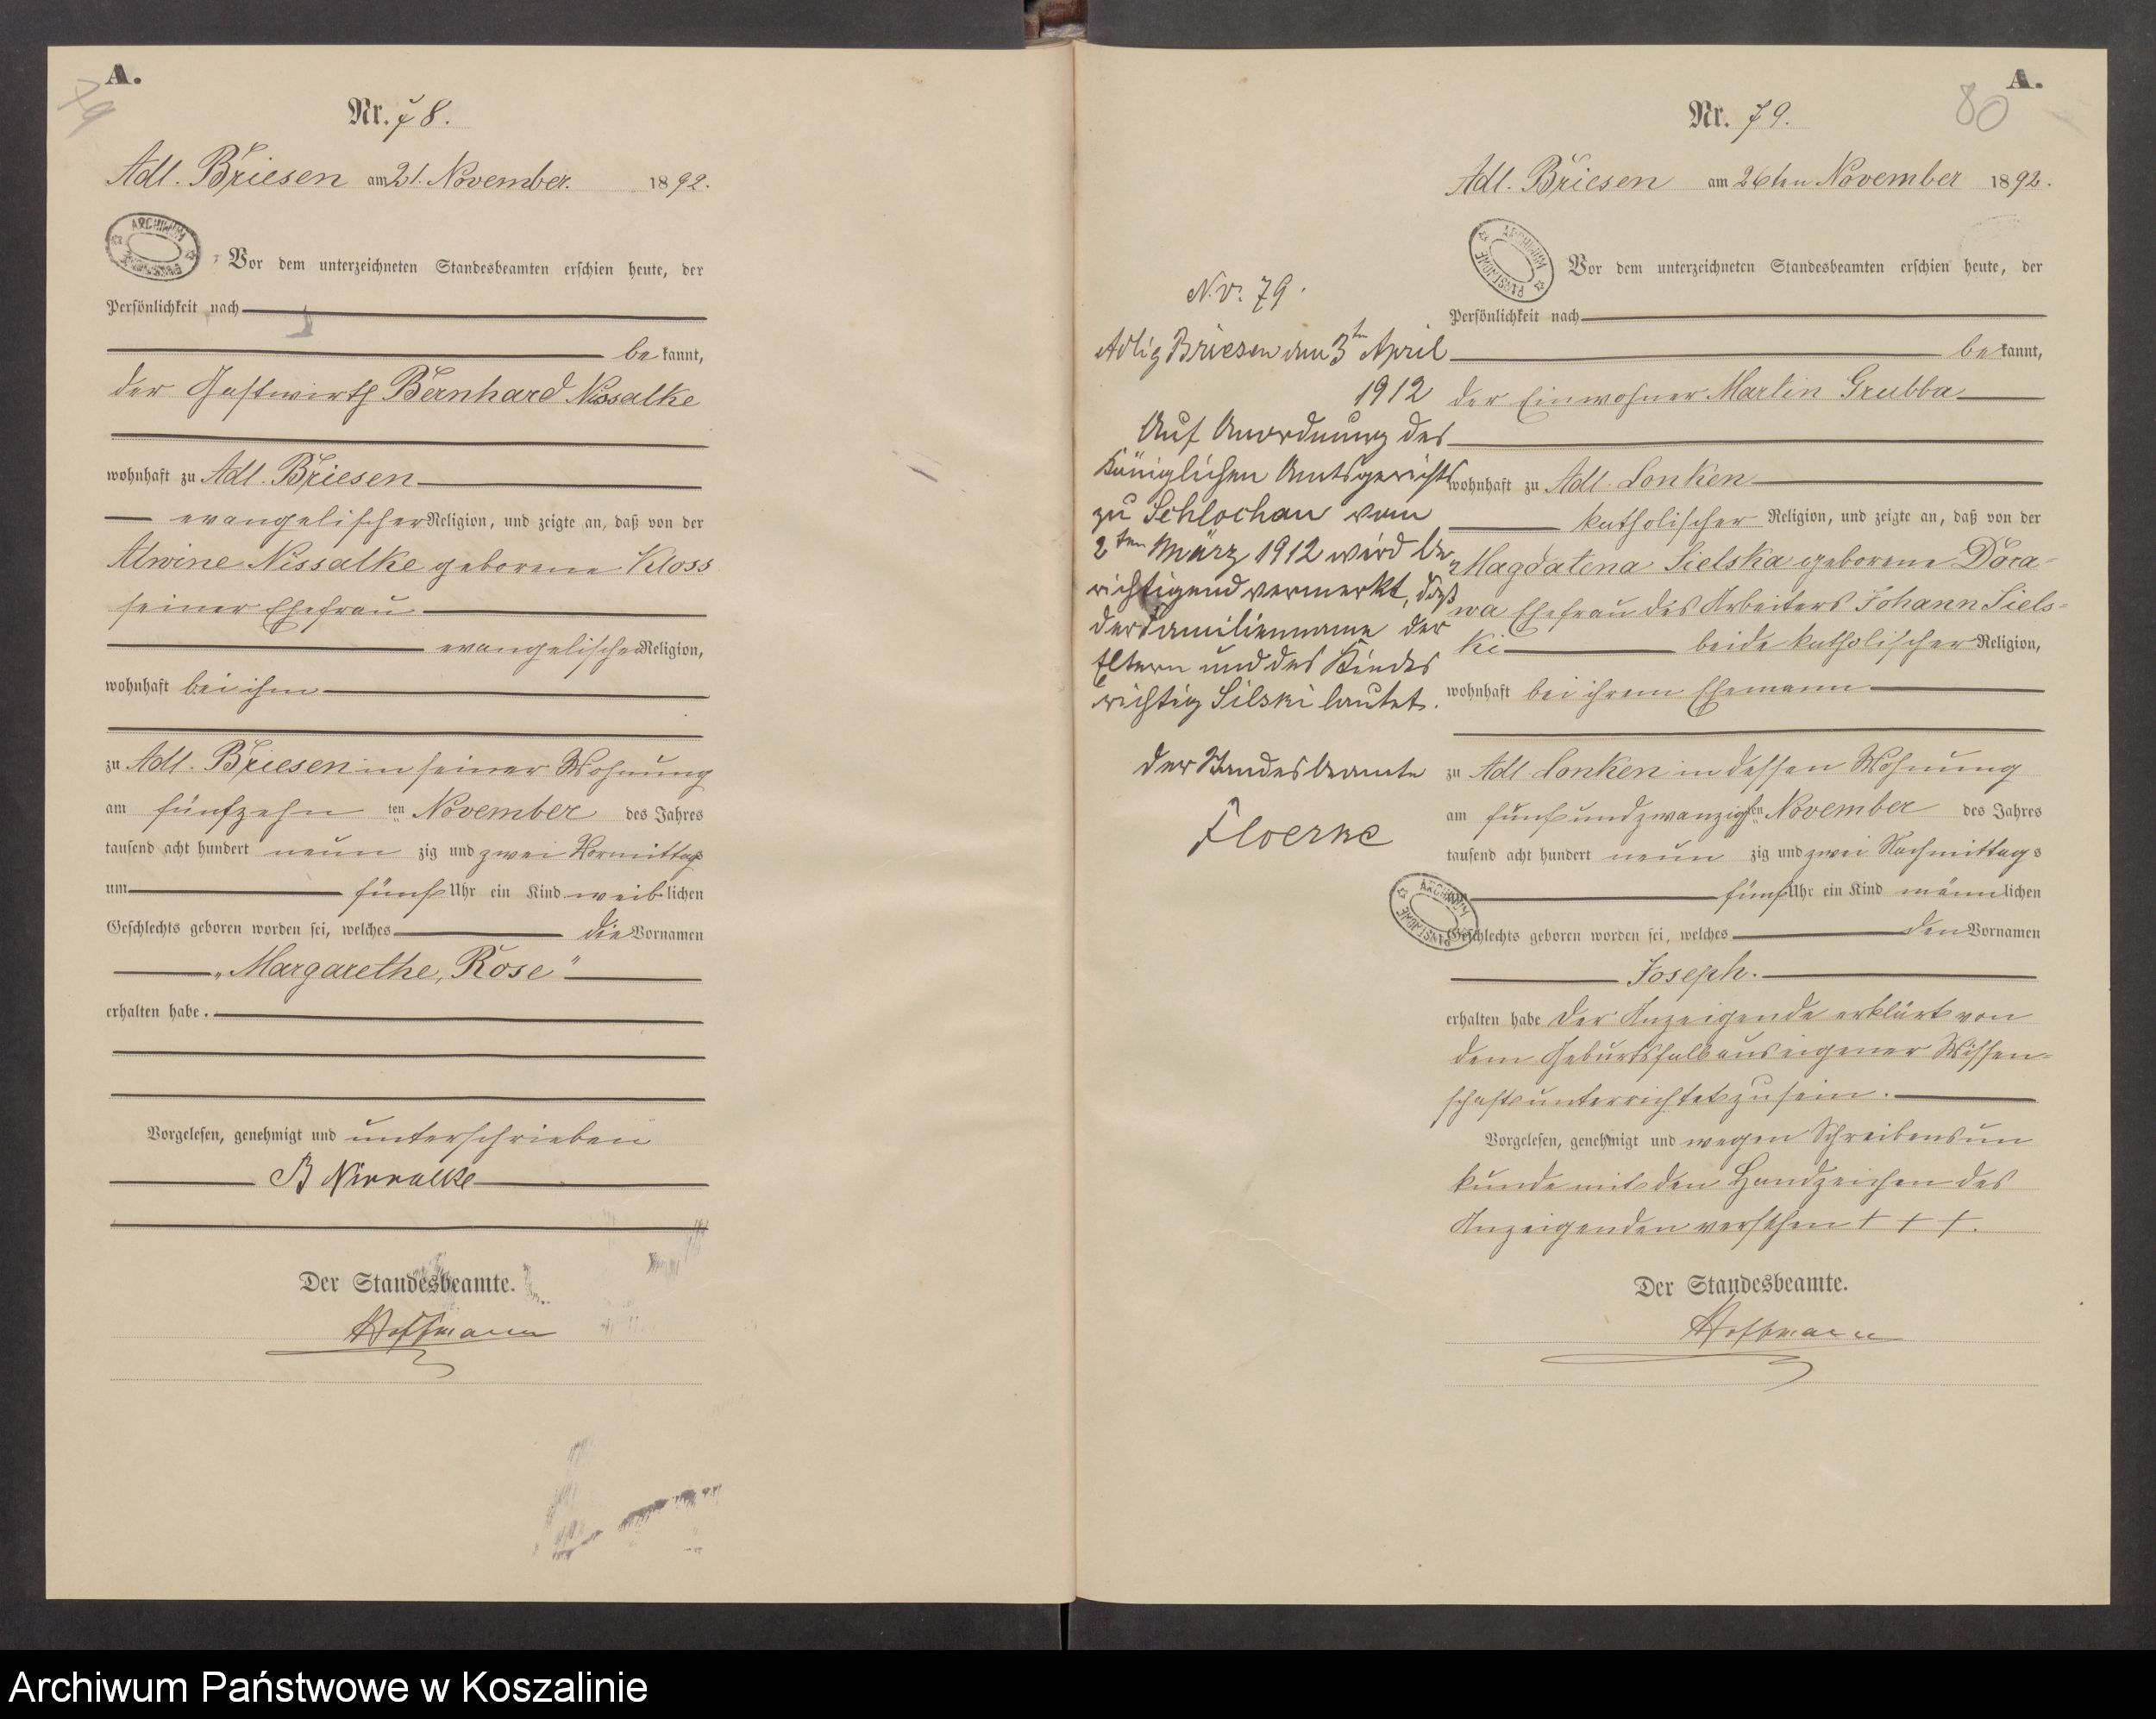 A.
79
Nr. 78.
Adl. Briesen am 21. November. 1892.
ARCHIWUM PAŃSTWOWE
Vor dem unterzeichneten Standesbeamten erschien heute, der
Persönlichkeit nach
bekannt,
der Gastwirth Bernhard Nissalke
wohnhaft zu Adl. Briesen
evangelischer Religion, und zeigte an, daß von der
Alwine Nissalke geborene Kloss
seiner Ehefrau
evangelischer Religion,
wohnhaft bei ihm
zu Adl. Briesen in seiner Wohnung
am fünfzehn ten November des Jahres
tausend acht hundert neun zig und zwei Vormittags
um fünf Uhr ein Kind weiblichen
Geschlechts geboren worden sei, welches die Vornamen
„Margarethe, Rose“
erhalten habe.
Vorgelesen, genehmigt und unterschrieben
B Nissalke
Der Standesbeamte.
Hoffmann
A.
80
Nr. 79.
Adl. Briesen am 26ten November 1892.
ARCHIWUM PAŃSTWOWE
Vor dem unterzeichneten Standesbeamten erschien heute, der
Persönlichkeit nach
bekannt,
der Einwohner Martin Grubba
wohnhaft zu Adl. Lonken
katholischer Religion, und zeigte an, daß von der
Magdalena Sielska geborene Dora-
wa Ehefrau des Arbeiters Johann Siels-
ki beide katholischer Religion,
wohnhaft bei ihrem Ehemann
zu Adl Lonken in dessen Wohnung
am fünf und zwanzigsten November des Jahres
tausend acht hundert neun zig und zwei Nachmittags
fünf Uhr ein Kind männlichen
Geschlechts geboren worden sei, welches den Vornamen
Joseph.
erhalten habe Der Anzeigende erklärt von
dem Geburtsfall aus eigener Wissen-
schaft unterrichtet zu sein.
Vorgelesen, genehmigt und wegen Schreibensun
kunde mit den Handzeichen des
Anzeigenden versehen + + +.
Der Standesbeamte.
Hoffmann
No. 79.
Adlig Briesen den 3ten April
1912
Auf Anordnung des
Königlichen Amtsgerichts
zu Schlochau vom
2ten März 1912 wird be
richtigend vermerkt, daß
der Familienname der
Eltern und des Kindes
richtig Silski lautet.
Der Standesbeamte
Floerke
ARCHIWUM PAŃSTWOWE
Archiwum Państwowe w Koszalinie